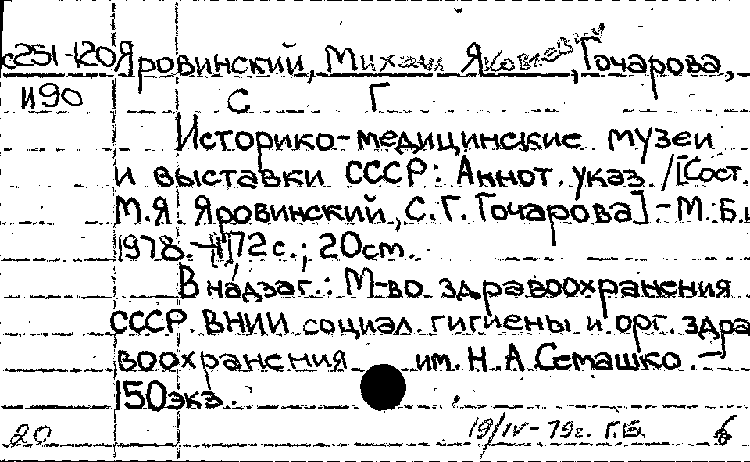 с251-120 Яровинский, Михаил Яковлевич, Гочарова,
И90 С Г
Историко-медицинские музеи
и выставки СССР: Аннот. указ. /[Сост.
М.Я. Яровинский, С.Г. Гочарова] - М. Б.и
1978. - 72 с.; 20 cm.
В надзаг.: М-во здравоохранения
СССР. ВНИИ социал. гигиены и орг. здра
воохранения им. Н.А. Семашко. -
150 экз.
20 19/IV-79г.